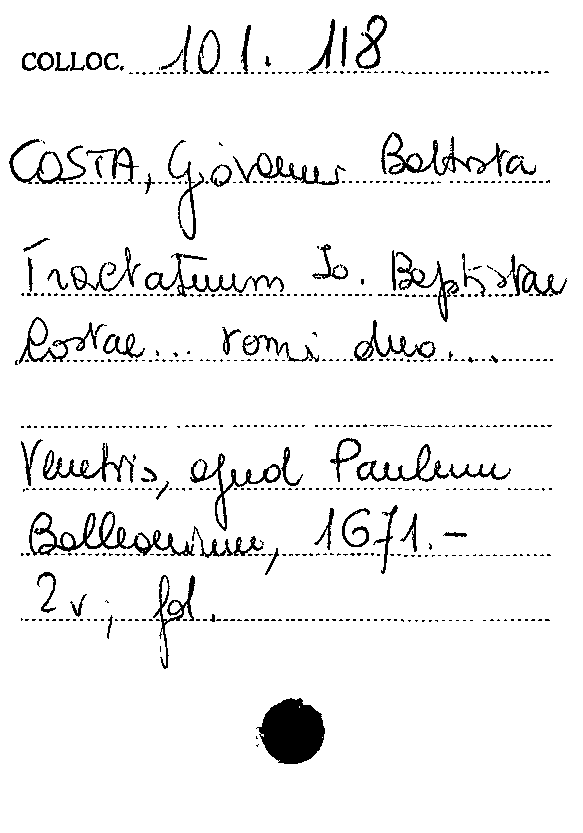 COLLOC. 101. 118
COSTA, Giovanni Battista
Tractatuum Io. Baptistae
Costae... tomi duo...
Venetiis, apud Paulum
Balleonium, 1671.-
2 v; fol.